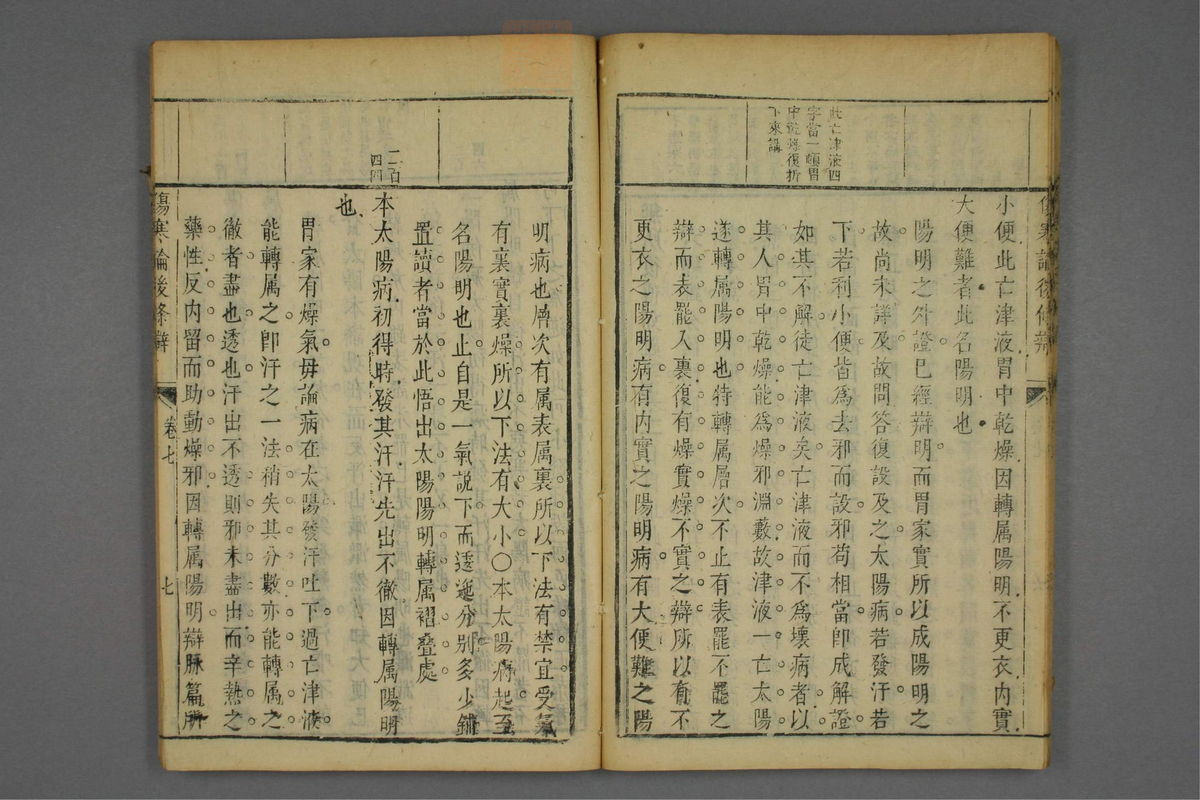 此亡津液四
字當一頓胃
中乾燥復折
下來講
小便此亡津液胃中乾燥因轉属陽明不更衣内實
大便難者此名陽明也
陽明之外證已經辯明而胃家實所以成陽明之
故尚未詳及故問答復設及之太陽病若發汗若
下若利小便皆爲去邪而設邪苟相當即成解證
如其不解徒亡津液矣亡津液而不爲壊病者以
其人胃中乾燥能爲燥邪淵藪故津液一亡太陽
遂轉属陽明也特轉属層次不止有表罷不罷之
辯而表罷入裏復有燥實燥不實之辯所以有不
更衣之陽明病有内實之陽明病有大便難之陽
明病也層次有属表属裏所以下法有禁宜受氣
有裏實裏燥所以下法有大小○本太陽病起至
名陽明也止自是一氣説下而逶迤分别多少鋪
置讀者當於此悟出太陽陽明轉属褶叠處
二百
四四
本太陽病初得時發其汗汗先出不徹因轉属陽明
也
胃家有燥氣毋論病在太陽發汗吐下過亡津液
能轉属之即汗之一法稍失其分數亦能轉属之
徹者盡也透也汗出不透則邪未盡出而辛熱之
藥性反内留而助動燥邪因轉属陽明辯脉篇所
傷寒論後條辯
卷七
七